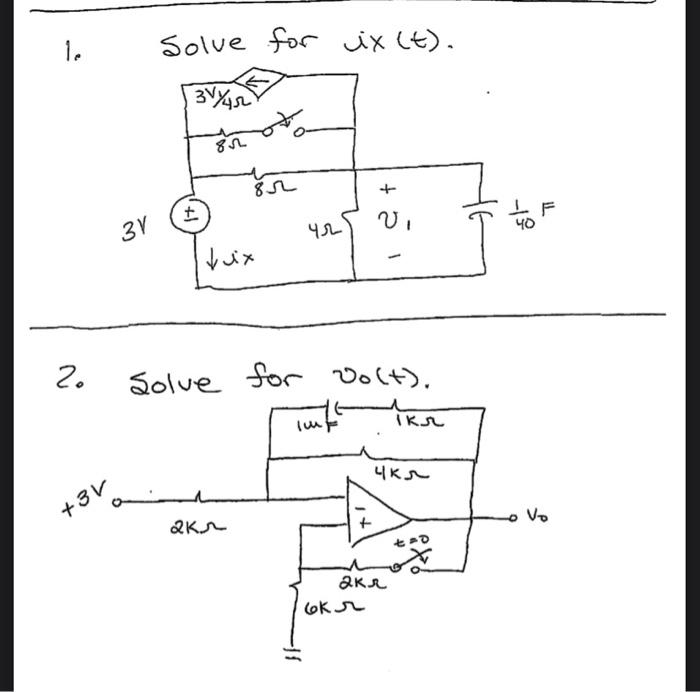 1. Solve for ix(t).
3V₁/4Ω
8Ω
8Ω
3V
±
↓ix
4Ω
+
v₁
-
1/40 F
2. Solve for vo(t).
1mF
1KΩ
4KΩ
+3V
2KΩ
-
+
Vo
t=0
2KΩ
6KΩ